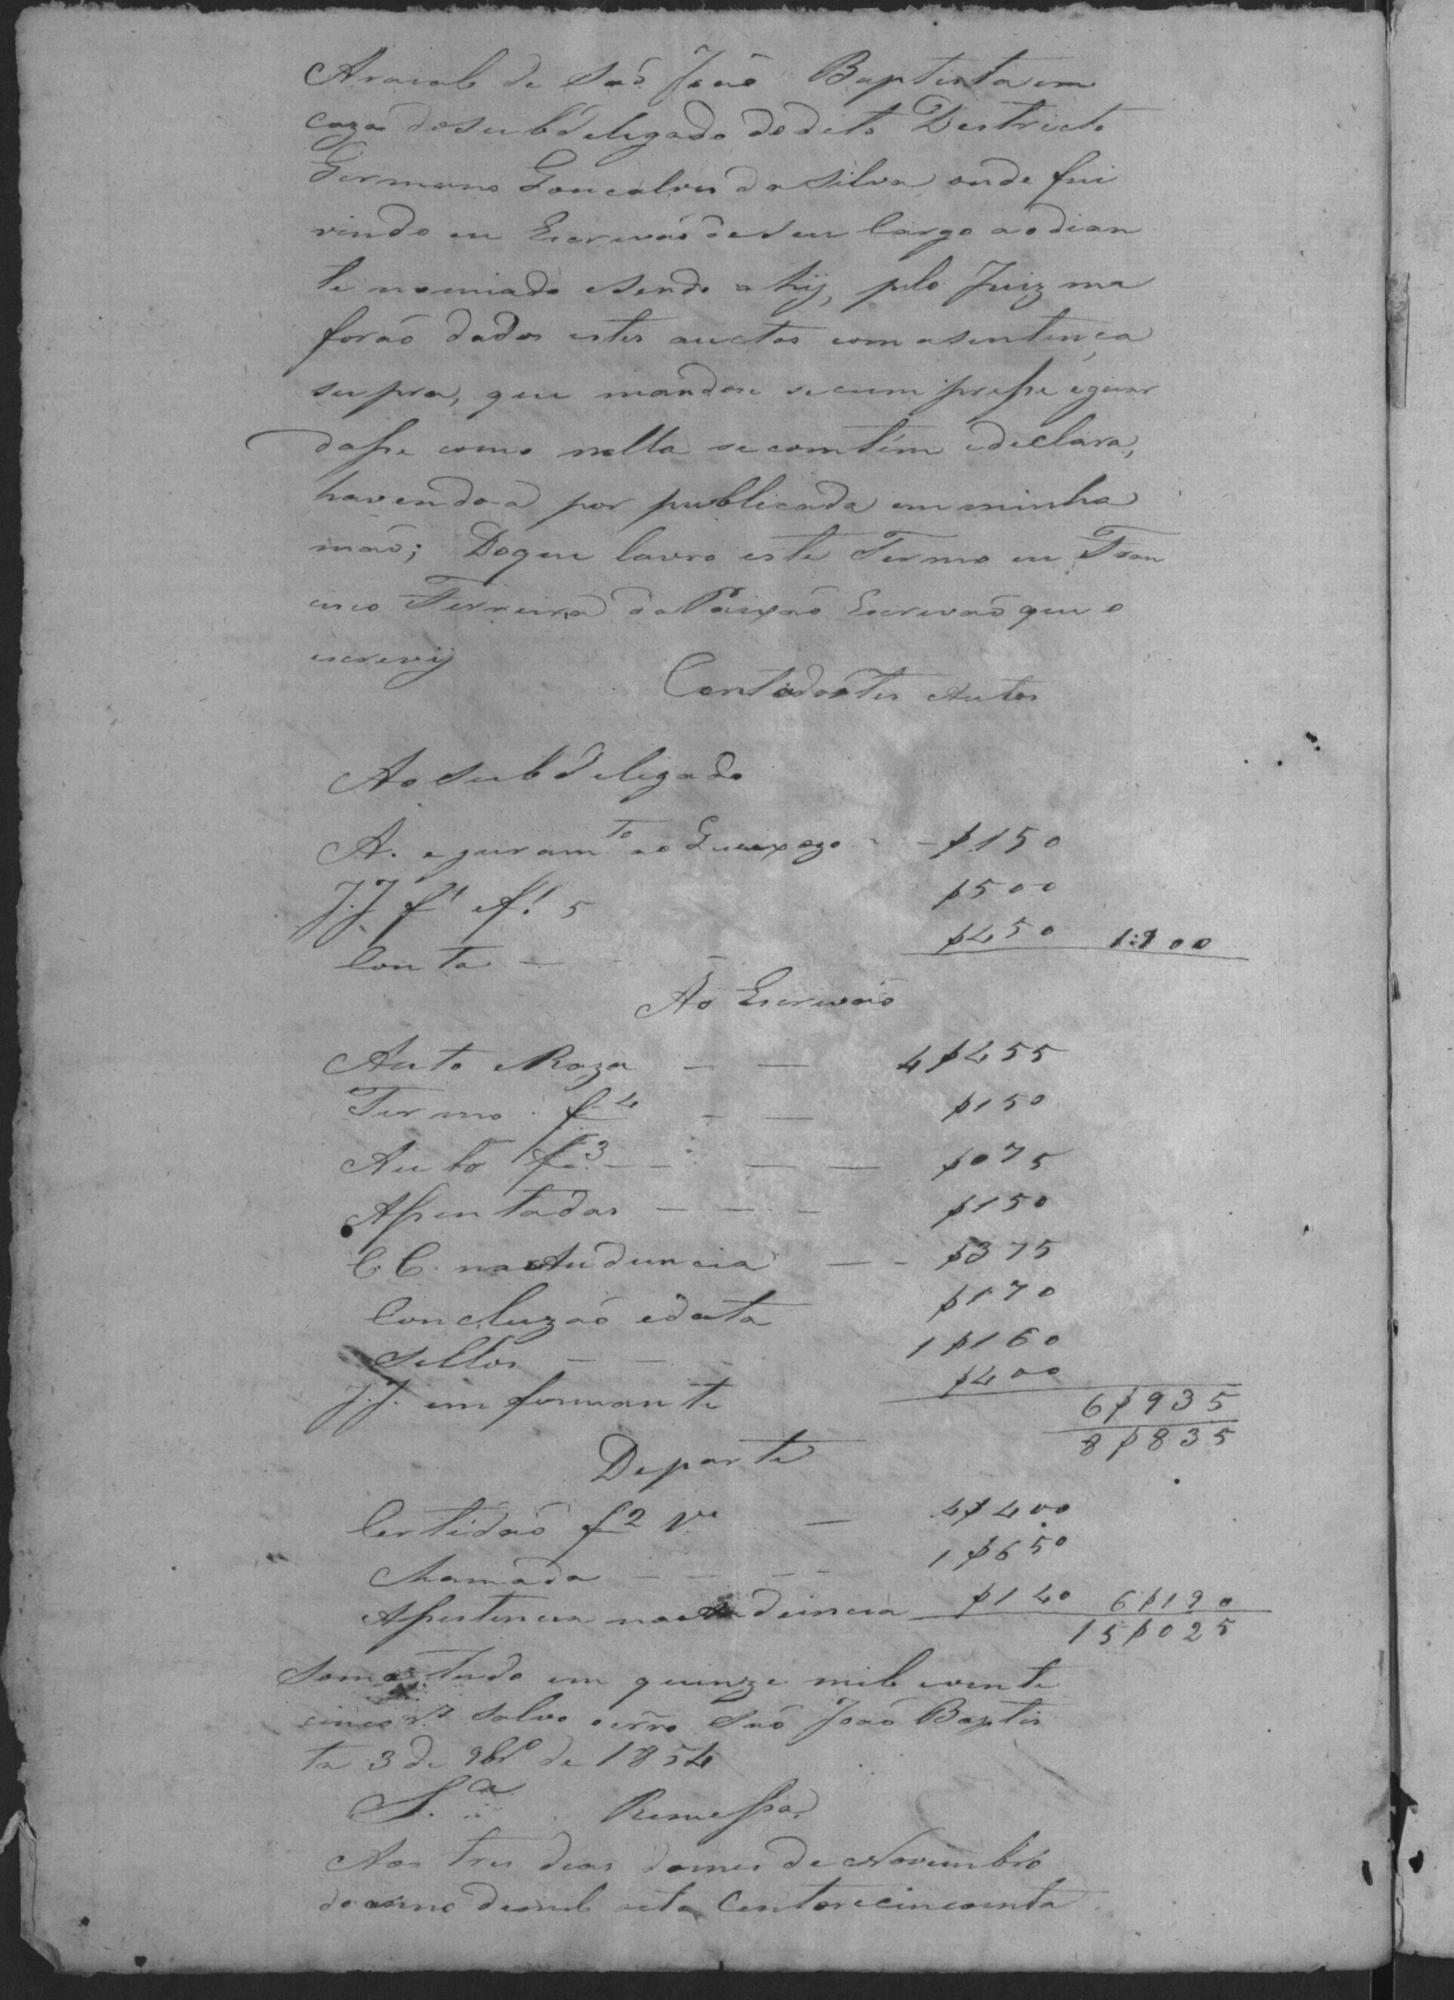 Araial de São João Baptista em
caza do Subdelegado do dito Destricto
Germano Goncalves da Silva onde fui
vindo eu Escrivão de seu Cargo ao dian
te nomiado e sendo ahy, pelo Juiz me
forão dados estes auctos com a sentença
supra, que mandou se cumprisse e guar
dasse como nella se comtém e declara,
havendo-a por publicada em minha
mão; Do que lavro este Termo eu Fran
cisco Ferreira da Paixão Escrivão que o
escrevij
Conta destes Autos
Ao Subdelegado
A. e juram.to ao - $150
J.J. f! e f! 5 $500
Conta - - - $450 1:100
Ao Escrivão
Auto e Raza - - 4$455
Termo f. 4 - - $150
Auto f. 3 - - - $075
Assentadas - - - $150
C.C. na Audiencia - - $375
Concluzão e data $170
Sellos - - - 1$160
J.J. em formante $400
6$935
8$835
Departe
Certidão f 2 v.e - 4$400
Chamada - - - 1$650
Assistencia na Audiencia $140 6$190
15$025
Soma tudo em quinze mil e vinte
cinco r.s salvo o erro São João Baptis
ta 3 de 9br.o de 1854
S.a Remessa
Aos tres dias do mes de Novembro
do anno de mil oito Centos e cincoenta